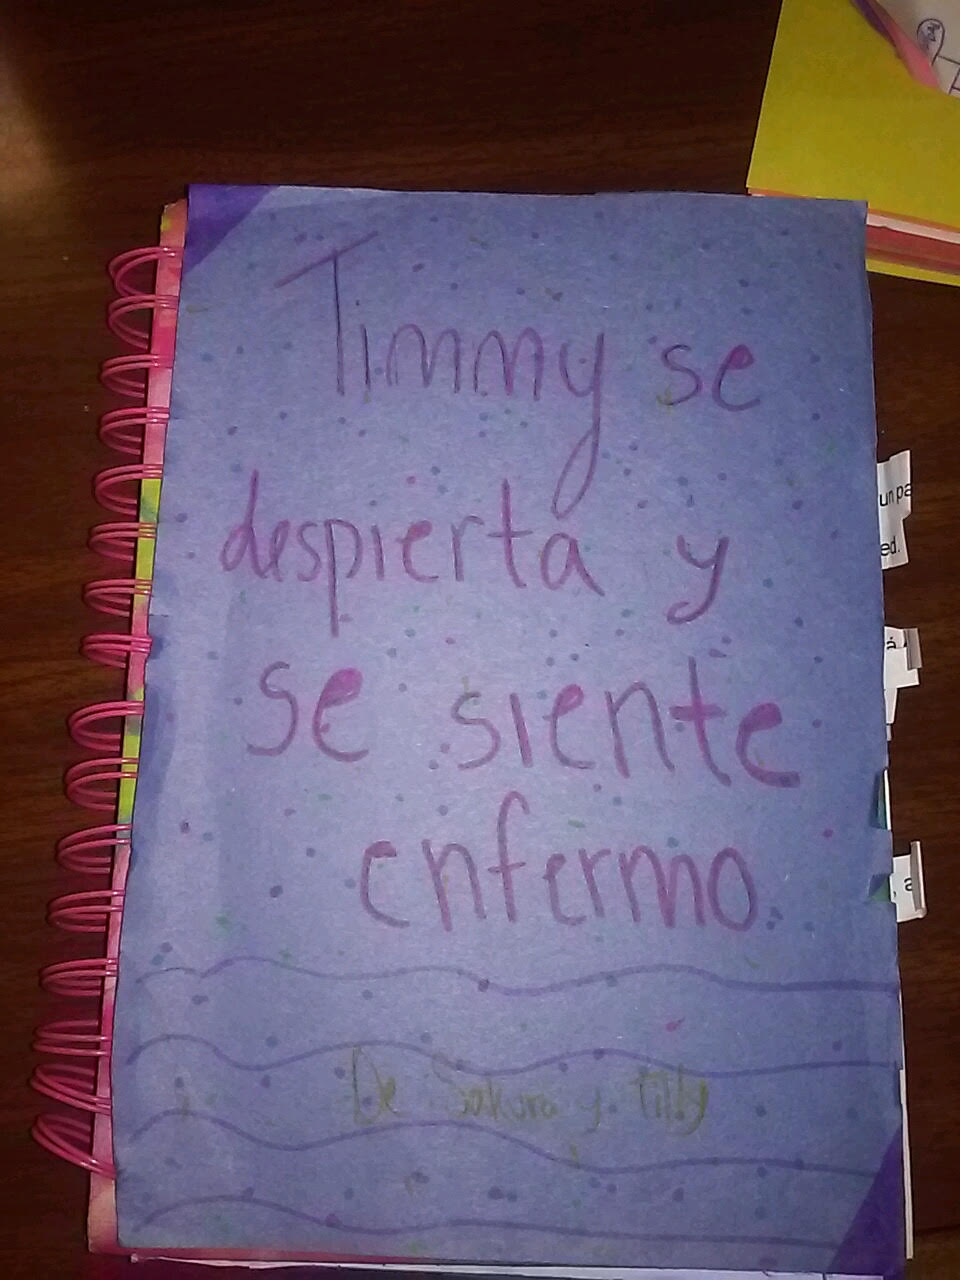 Timmy se
despierta y
se siente
enfermo
De Sakura y
un pa
ed.
á
, a